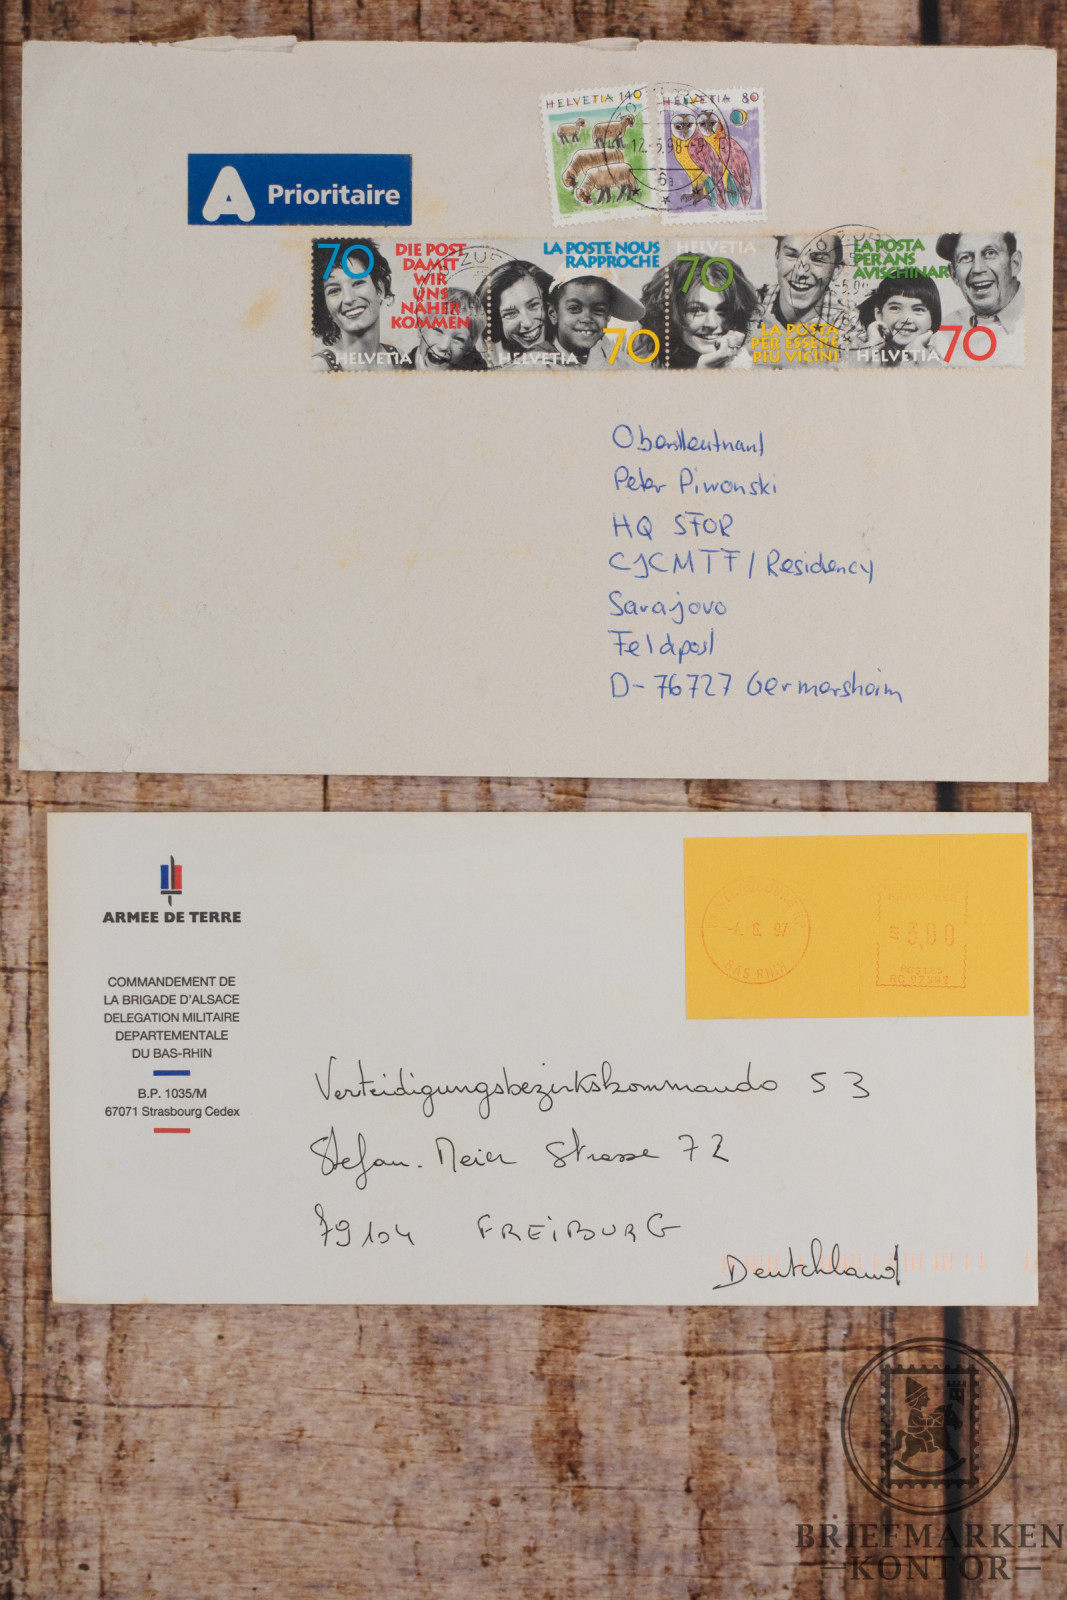 HELVETIA 140
HELVETIA 80
12.5.98
Prioritaire
70
DIE POST
DAMIT
WIR
UNS
NÄHER
KOMMEN
HELVETIA
LA POSTE NOUS
RAPPROCHE
HELVETIA
70
HELVETIA
70
LA POSTA
PER ESSERE
PIÙ VICINI
LA POSTA
PER ANS
AVISCHINAR
HELVETIA
70
Oberstleutnant
Peter Piwonski
HQ SFOR
CJCMTF/Residency
Sarajovo
Feldpost
D-76727 Germersheim
ARMEE DE TERRE
COMMANDEMENT DE
LA BRIGADE D'ALSACE
DELEGATION MILITAIRE
DEPARTEMENTALE
DU BAS-RHIN
B.P. 1035/M
67071 Strasbourg Cedex
6. 97
BAS RHIN
3,00
POSTES
Verteidigungsbezirkskommando 53
Stefan. Meier Strasse 72
79104 FREIBURG
Deutchland
BRIEFMARKEN
KONTOR